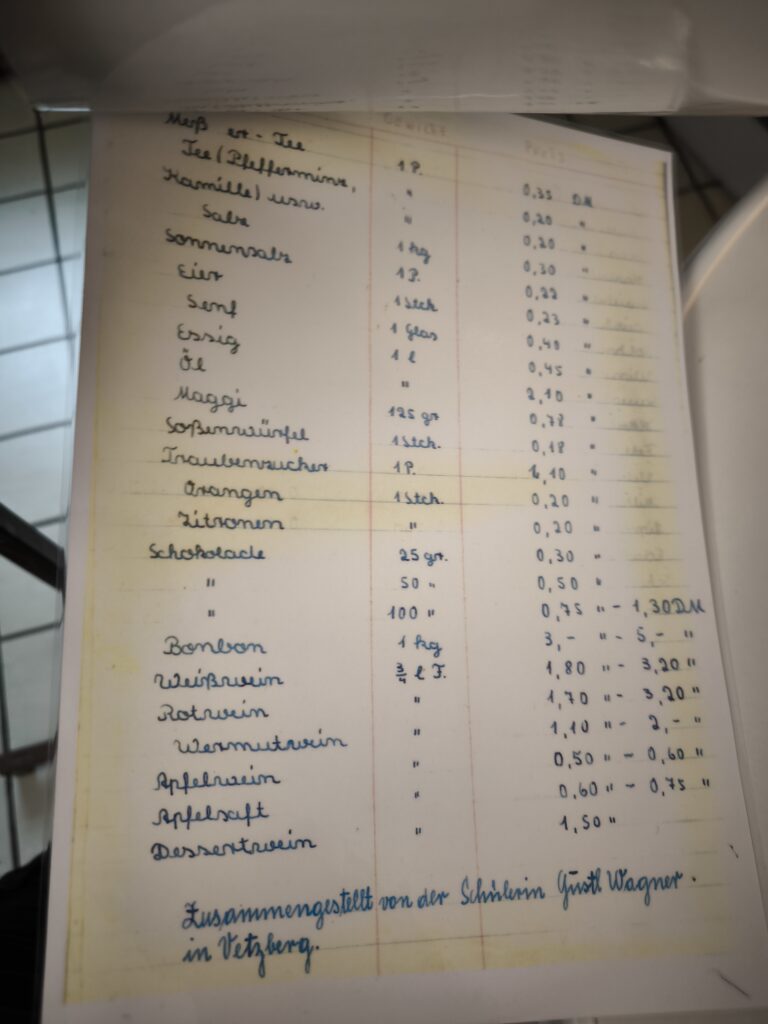 Gewicht Preis
Meß er - Tee 1 P. 0,35 DM
Tee (Pfefferminz, " 0,20 "
Kamille) usw. " 0,20 "
Salz 1 kg 0,30 "
Sonnensalz 1 P. 0,22 "
Eier 1 Stck 0,23 "
Senf 1 Glas 0,40 "
Essig 1 l 0,45 "
Öl " 2,10 "
Maggi 125 gr 0,78 "
Soßenwürfel 1 Stck. 0,18 "
Traubenzucker 1 P. 1,10 "
Orangen 1 Stck. 0,20 "
Zitronen " 0,20 "
Schokolade 25 gr. 0,30 "
" 50 " 0,50 "
" 100 " 0,75 " - 1,30 DM
Bonbon 1 kg 3,- " - 5,- "
Weißwein 3/4 l F. 1,80 " - 3,20 "
Rotwein " 1,70 " - 3,20 "
Wermutwein " 1,10 " - 2,- "
Apfelwein " 0,50 " - 0,60 "
Apfelsaft " 0,60 " - 0,75 "
Dessertwein " 1,50 "
Zusammengestellt von der Schülerin Gustl Wagner.
in Vetzberg.